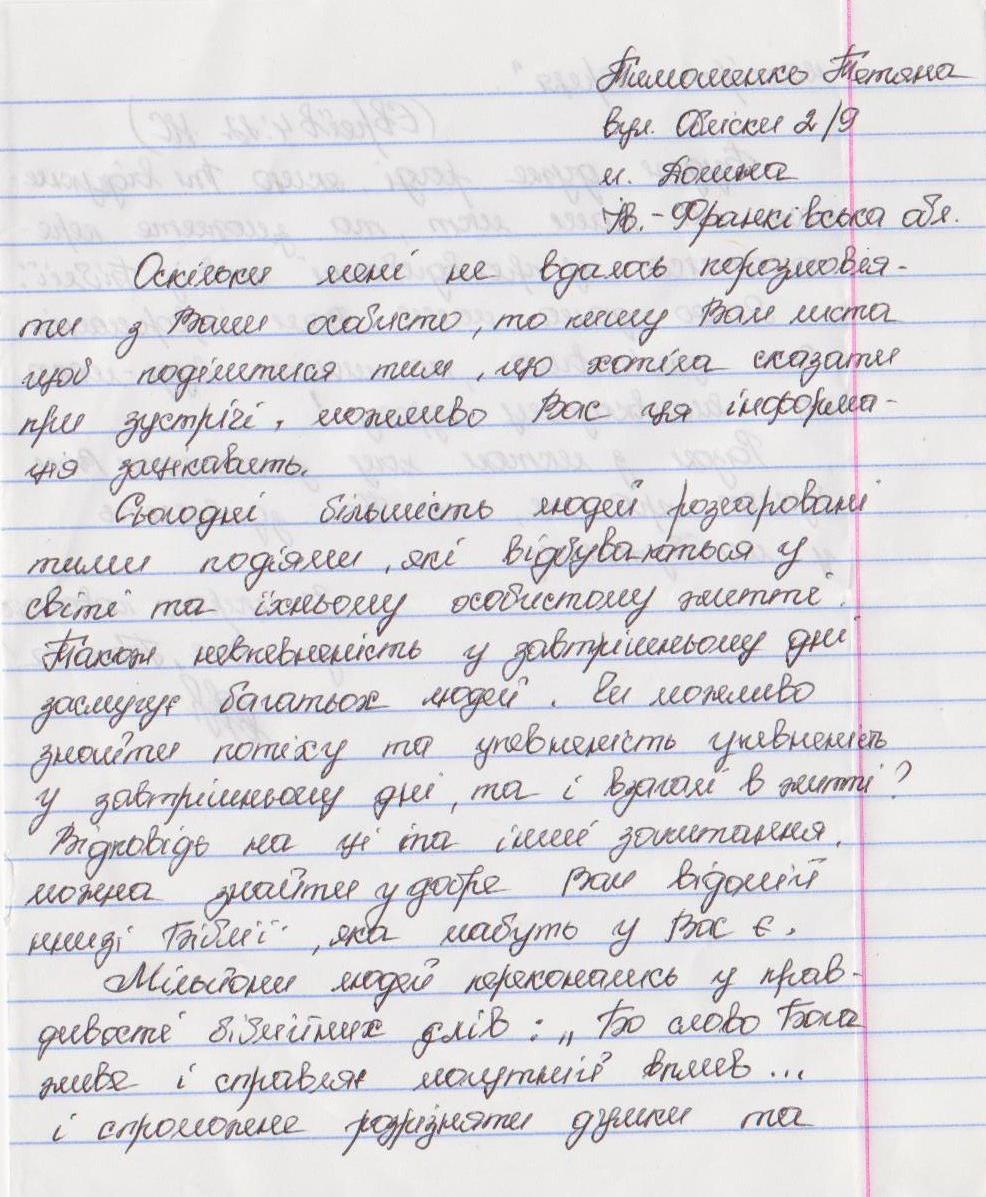 Тимошенко Тетяна
вул. Обліски 2/9
м. Долина
Ів.-Франківська обл.
Оскільки мені не вдалось порозмовля-
ти з Вами особисто, то пишу Вам листа
щоб поділитися тим, що хотіла сказати
при зустрічі, можливо Вас ця інформа-
ція зацікавить.
Сьогодні більшість людей розчаровані
тими подіями, які відбуваються у
світі та їхньому особистому житті.
Також невпевненість у завтрішньому дні
засмучує багатьох людей. Чи можливо
знайти потіху та упевненість упевненість
у завтрішньому дні, та і взагалі в житті?
Відповідь на ці та інші запитання,
можна знайти у добре Вам відомій
книзі Біблії, яка мабуть у Вас є.
Мільйони людей переконались у прав-
дивості біблійних слів: „Бо слово Бога
живе і справляє могутній вплив...
і спроможне розрізняти думки та